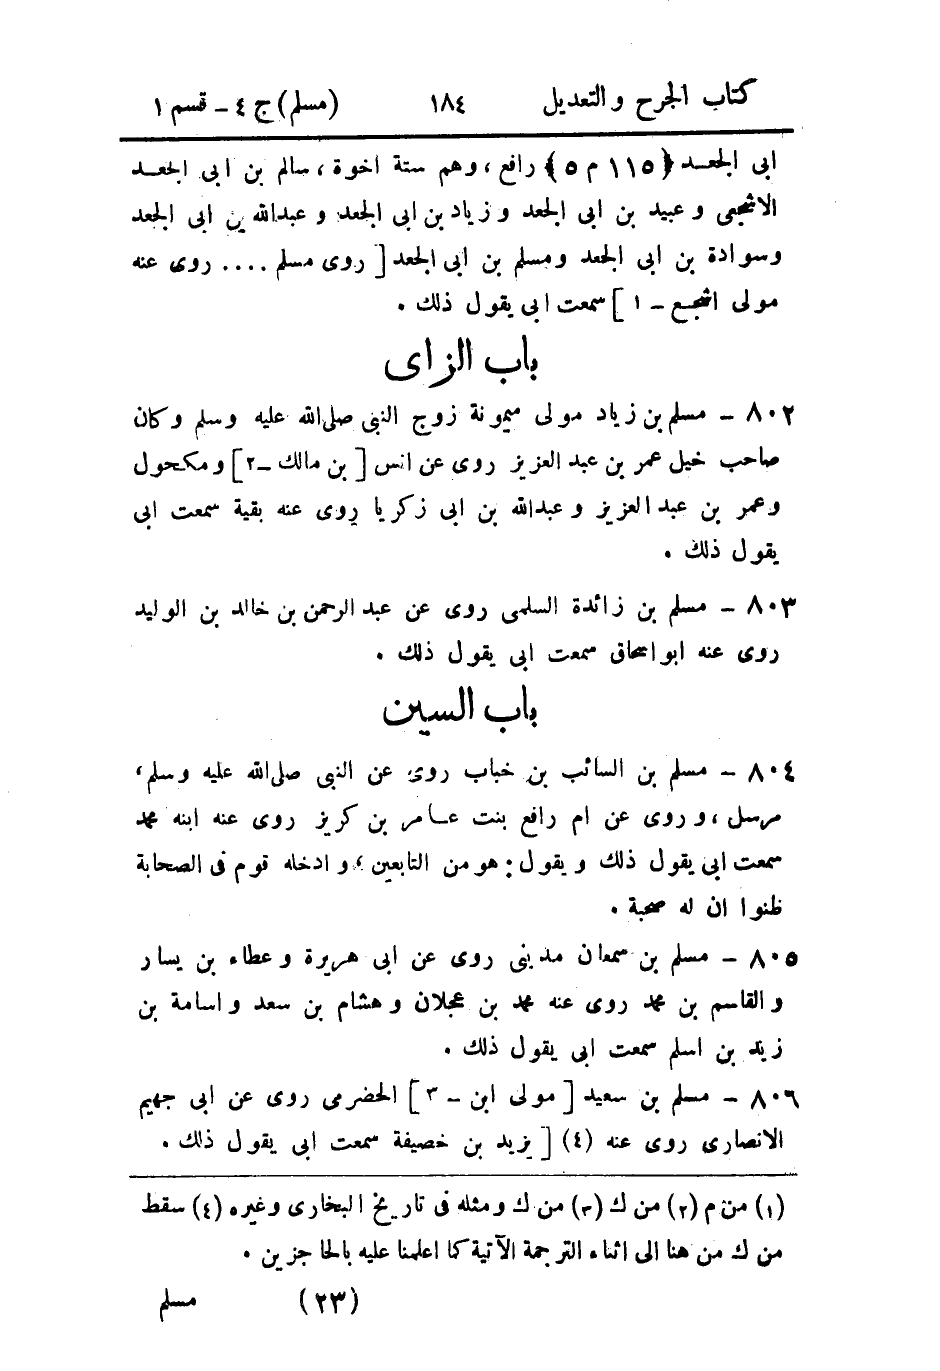 كتاب الجرح والتعديل ١٨٤ (مسلم) ج ٤ - قسم ١
ابى الجعد (١١٥ م ٥) رافع ، وهم ستة اخوة ، سالم بن ابى الجعد
الاشجعى و عبيد بن ابى الجعد و زياد بن ابى الجعد و عبدالله بن ابى الجعد
وسوادة بن ابى الجعد ومسلم بن ابى الجعد [ روى مسلم .... روى عنه
مولى اشجع - ١ ] سمعت ابى يقول ذلك .
باب الزاى
٨٠٢ - مسلم بن زياد مولى ميمونة زوج النبى صلى الله عليه وسلم وكان
صاحب خيل عمر بن عبد العزيز روى عن انس [ بن مالك - ٢ ] ومكحول
وعمر بن عبد العزيز و عبدالله بن ابى زكريا روى عنه بقية سمعت ابى
يقول ذلك .
٨٠٣ - مسلم بن زائدة السلمى روى عن عبد الرحمن بن خالد بن الوليد
روى عنه ابو اسحاق سمعت ابى يقول ذلك .
باب السين
٨٠٤ - مسلم بن السائب بن خباب روى عن النبى صلى الله عليه وسلم ،
مرسل ، و روى عن ام رافع بنت عامر بن كريز روى عنه ابنه محمد
سمعت ابى يقول ذلك و يقول : هو من التابعين ، و ادخله قوم فى الصحابة
ظنوا ان له صحبة .
٨٠٥ - مسلم بن سمعان مدينى روى عن ابى هريرة و عطاء بن يسار
و القاسم بن محمد روى عنه محمد بن عجلان و هشام بن سعد و اسامة بن
زيد بن اسلم سمعت ابى يقول ذلك .
٨٠٦ - مسلم بن سعيد [ مولى ابن - ٣ ] الحضرمى روى عن ابى جهيم
الانصارى روى عنه (٤) [ يزيد بن خصيفة سمعت ابى يقول ذلك .
(١) من م (٢) من ك (٣) من ك ومثله فى تاريخ البخارى وغيره (٤) سقط
من ك من هنا الى اثناء الترجمة الآتية كما اعلمنا عليه بالحاجزين .
(٢٣) مسلم